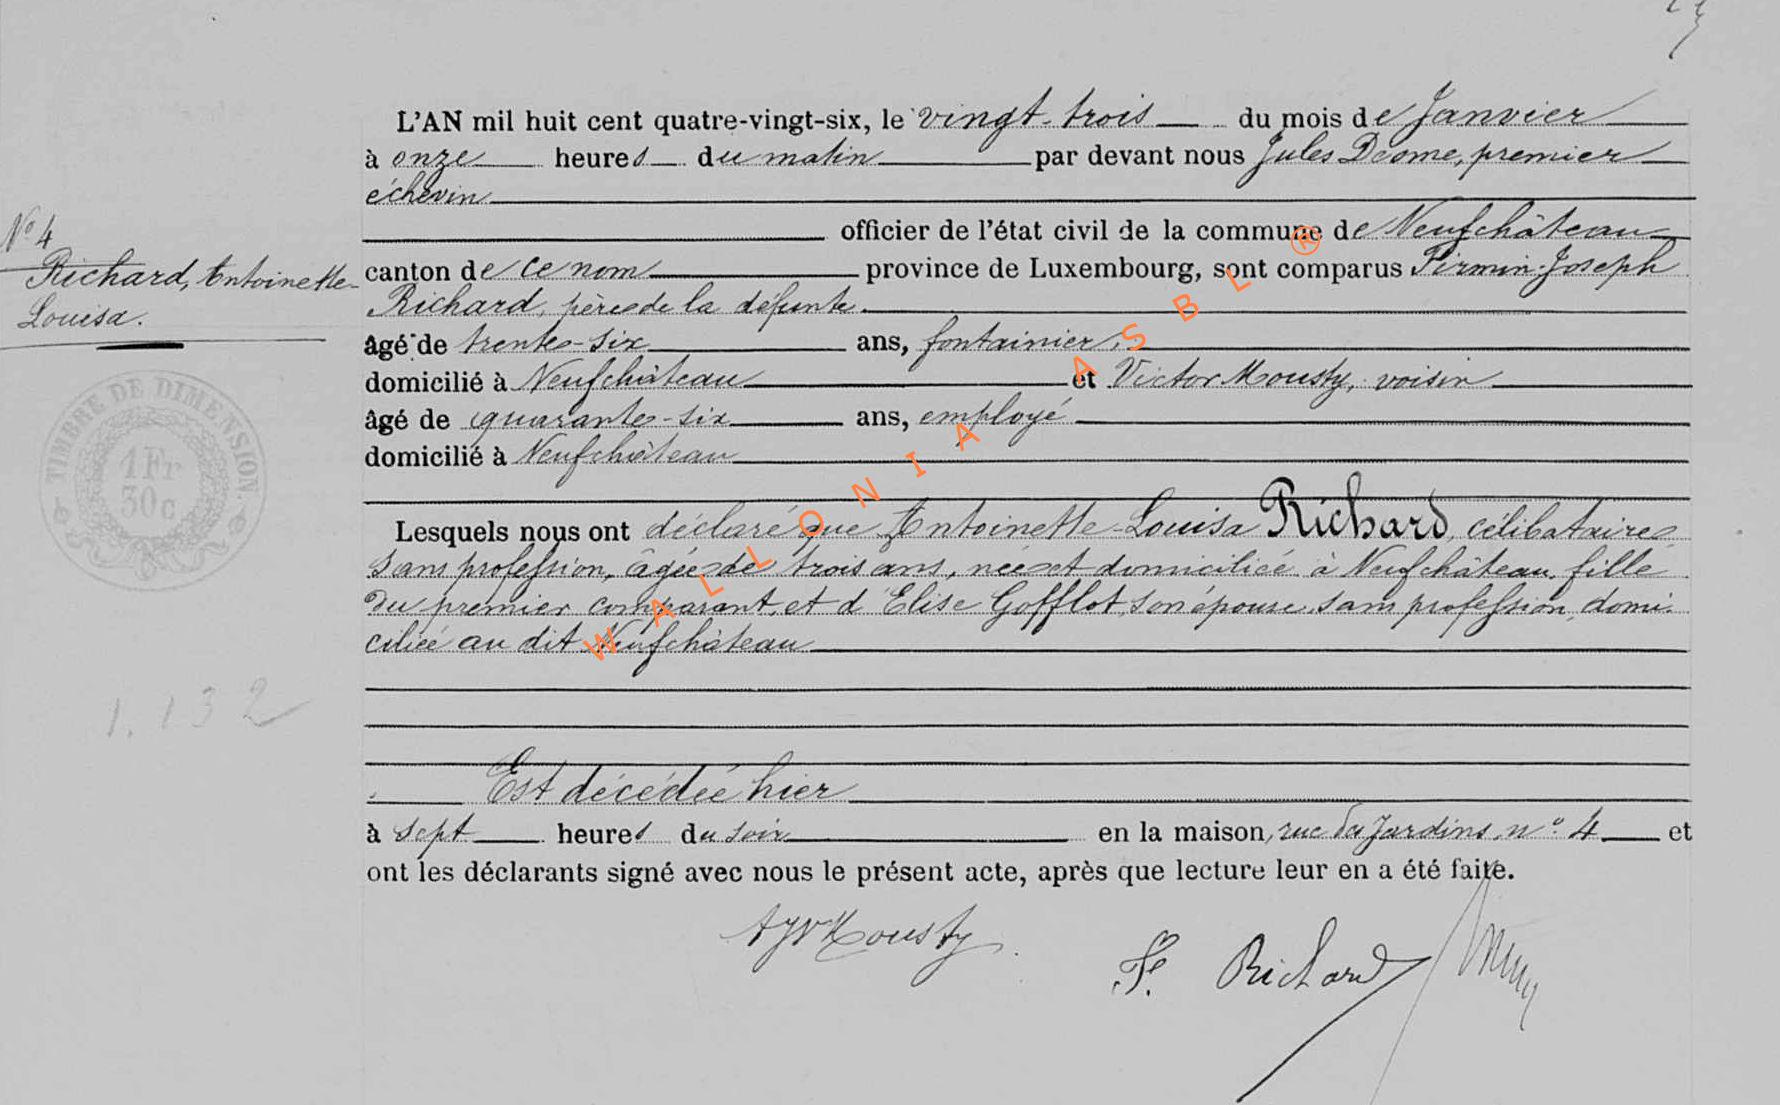 L'AN mil huit cent quatre-vingt-six, le vingt-trois du mois de Janvier
à onze heures du matin par devant nous Jules Deome, premier
échevin
officier de l'état civil de la commune de Neufchâteau
N° 4
Richard, Antoinette-
Louisa.
canton de ce nom province de Luxembourg, sont comparus Firmin-Joseph
Richard, père de la défunte
âgé de trente-six ans, fontainier,
domicilié à Neufchâteau et Victor Mousty, voisin
âgé de quarante-six ans, employé
domicilié à Neufchâteau
TIMBRE DE DIMENSION.
1 Fr
30 c
Lesquels nous ont déclaré que Antoinette-Louisa Richard, célibataire
sans profession, âgée de trois ans, née et domiciliée à Neufchâteau, fille
du premier comparant et d'Elise Gofflot, son épouse, sans profession, domi-
ciliée au dit Neufchâteau
1.132
Est décédée hier
à sept heures du soir en la maison, rue des Jardins, n° 4 et
ont les déclarants signé avec nous le présent acte, après que lecture leur en a été faite.
Mousty
F. Richard
WALLONIA ASBL ®